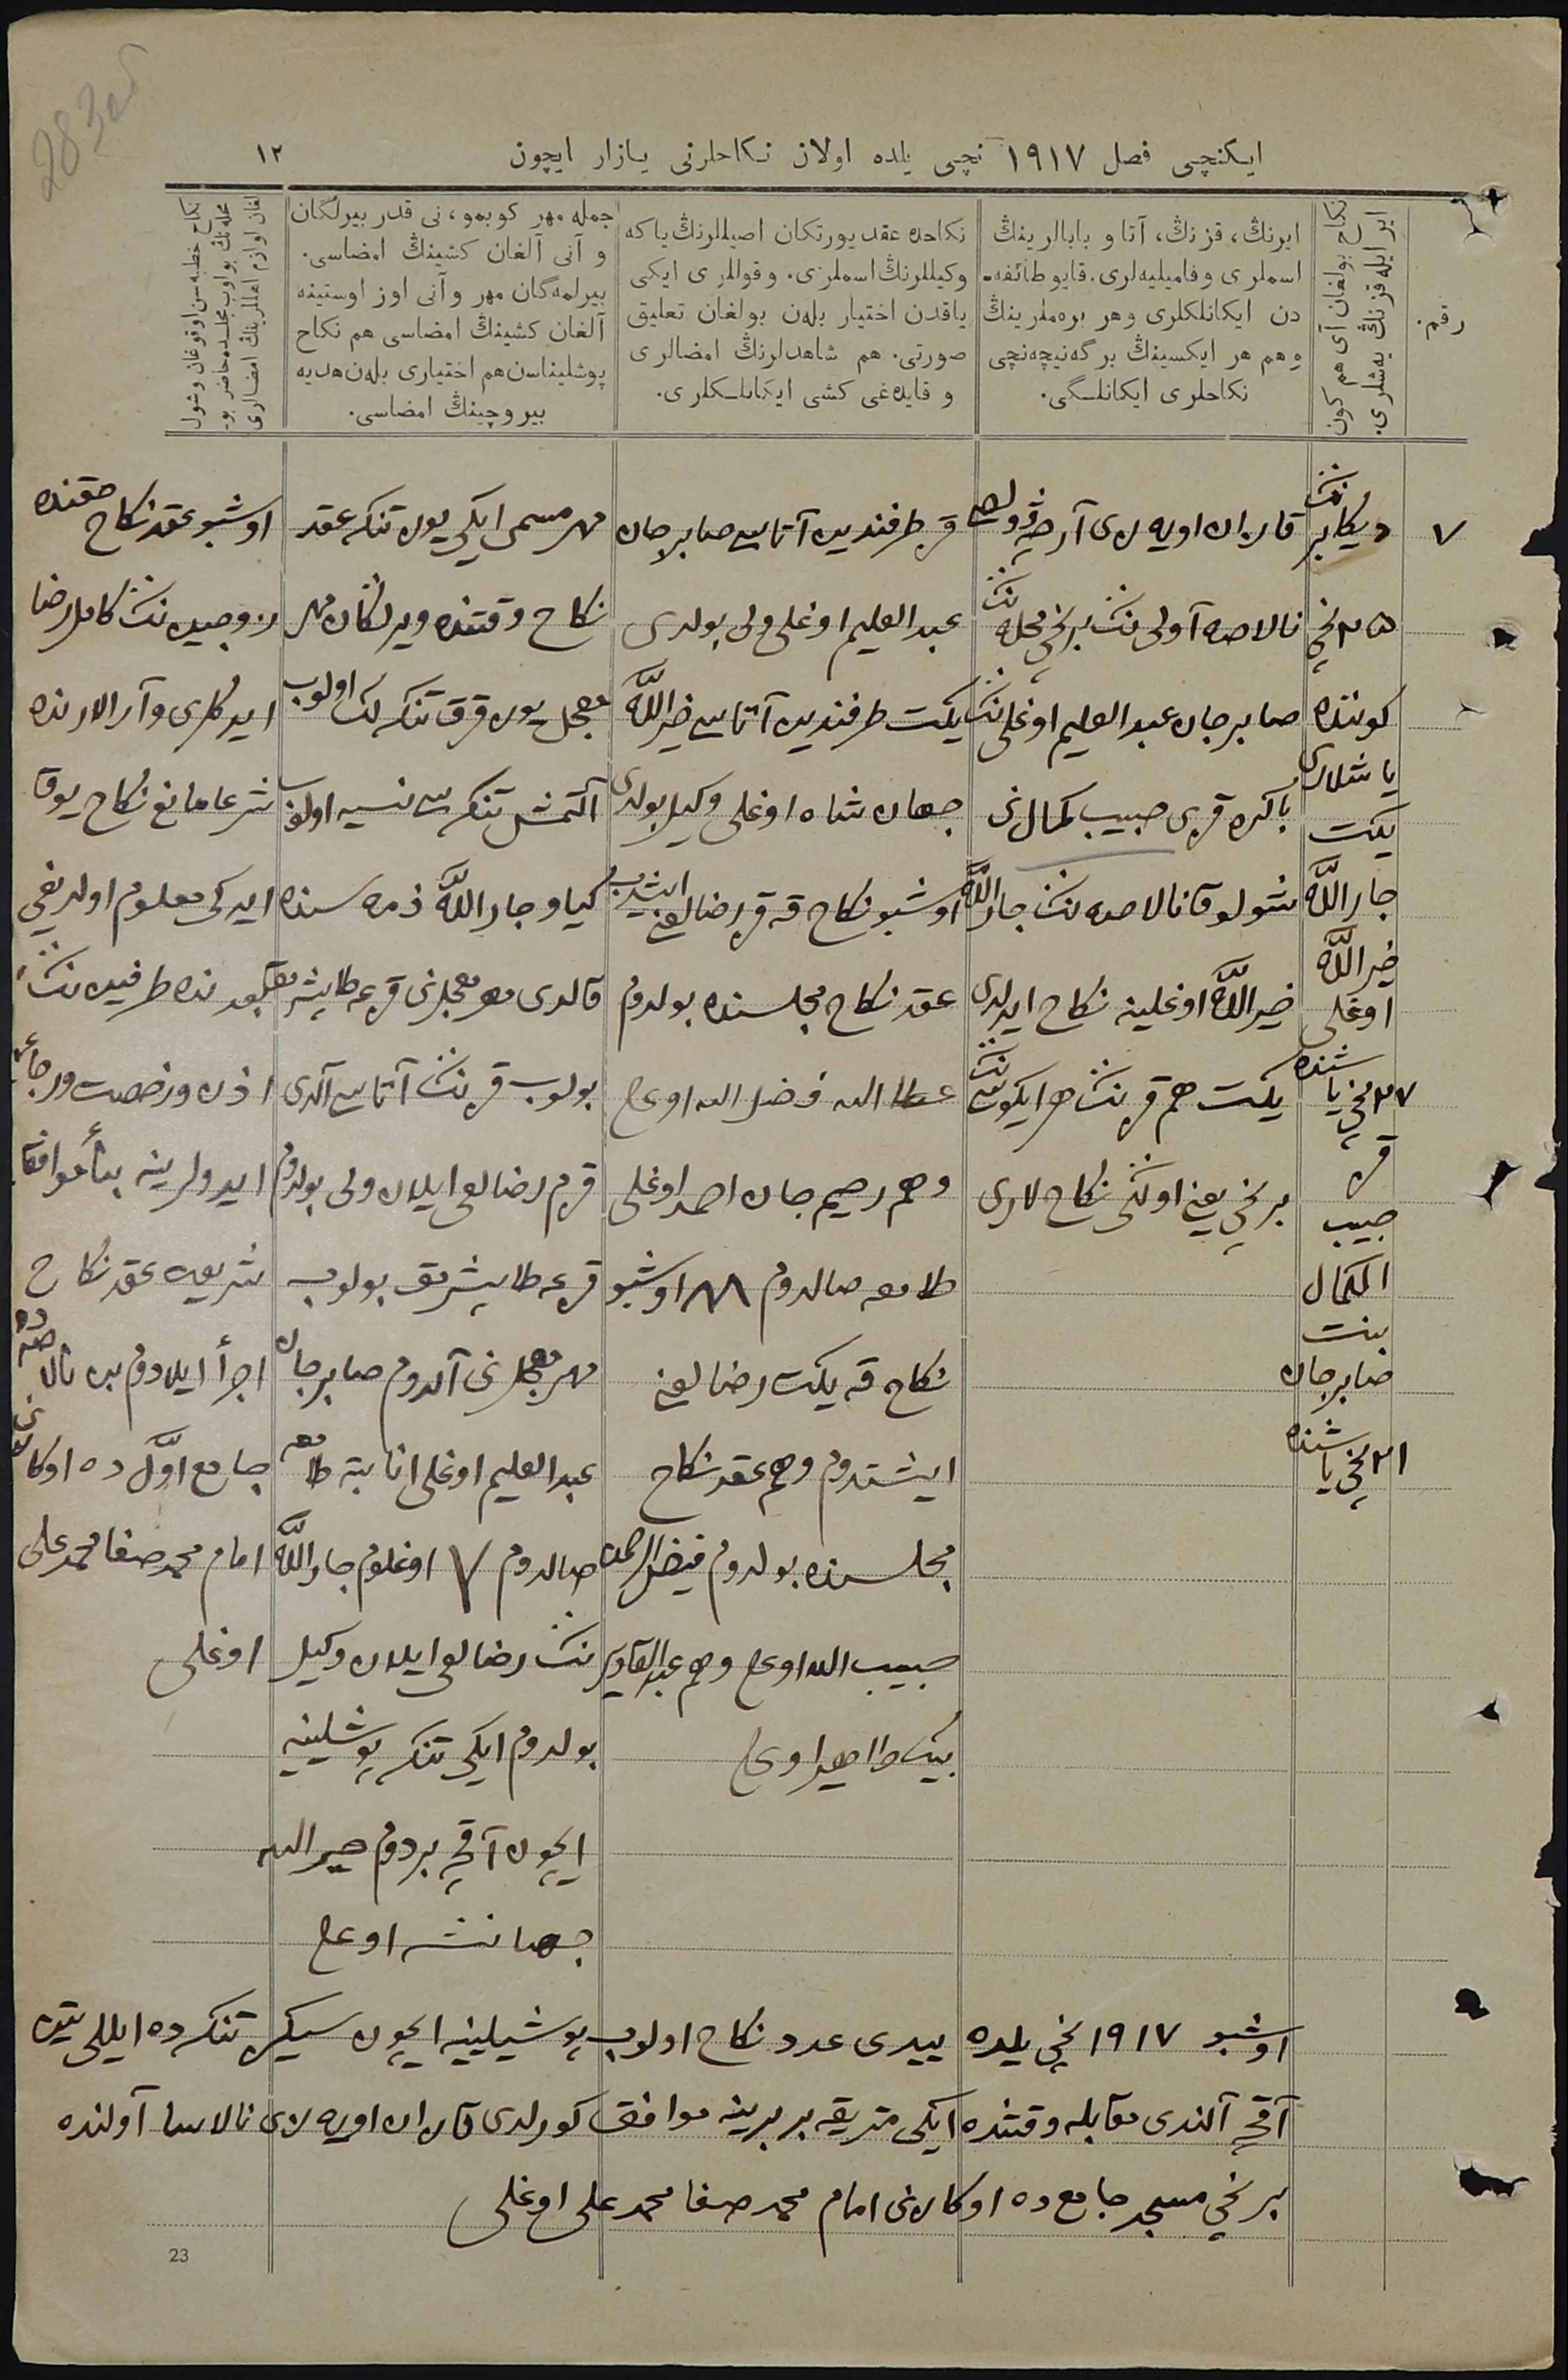 283об
ایكنچی فصل ١٩١٧ نچی یلده اولان نكاحلرنی یازار ایچون
١٢
رقم.
نكاح بولغان آی هم كون
ایر ایله قزنڭ یه‌شلری.
ایرنڭ، قزنڭ، آتا و بابالرینڭ
اسملری و فامیلیه‌لری. قایو طائفه‌ـ
دن ایكانلكلری وهر بره‌ملرینڭ
وهم هر ایكسینڭ برگه‌نیچه‌نچی
نكاحلری ایكانلـگی.
نكاحده عقد یورتكان اصیللرنڭ یاكه
وكیللرنڭ اسملری. و قوللری ایكی
یاقدن اختیار بله‌ن بولغان تعلیق
صورتی. هم شاهدلرنڭ امضالری
و قایده‌غی كشی ایكانلـكلری.
جمله مهر كوبمو، نی قدر بیرلگان
و آنی آلغان كشینڭ امضاسی.
بیرلمه‌گان مهر و آنی اوز اوستینه
آلغان كشینڭ امضاسی هم نكاح
پوشلیناسن هم اختیاری بله‌ن هدیه
بیروچینڭ امضاسی.
نكاح خطبه‌سن اوقوغان وشول
محله‌نڭ بولوب مجلسده حاضر بو‌ـ
لغان لوازم اهللرینڭ امضالری
٧
دیكابر نڭ
٢٥ نچی
كوننده
یاشلاری
یكت
جارالله
خیرالله
اوغلی
٢٧ نچی یاشنده
قز
حبیب
الكمال
بنت
صابرجان
٢١ نچی یاشنده
قازان اویه‌زی آرچه ڤولصی
نالاصه آولی نڭ برنچی محله نڭ
صابرجان عبدالعلیم اوغلی نڭ
باكره قزی حبیب كمال نی
شولوق نالاصه نڭ جارالله
خیرالله اوغلینه نكاح ایدلدی
یكت هم قزنڭ هر ایكوسی نڭ
برنچی یعنی اولگی نكاح لاری
قز طرفندین آتاسی صابرجان
عبدالعلیم اوغلی ولی بولدی
یكت طرفندین آتاسی خیرالله
جهان شاه اوغلی وكیل بولدی
اوشبو نكاح قه قز رضالغن ایشدوب
عقد نكاح مجلسنده بولدوم
عطا الله فضل الله اوغلی
وهم رحیم جان احمد اوغلی
طامغه صالدوم ٨٩ اوشبو
نكاح قه یكت رضالغن
ایشتدوم وهم عقد نكاح
مجلسنده بولدوم فیض الرحمن
حبیب الله اوغلی وهم عبدالقادر
بیك طاهیر اوغلی
مهر مسمی ایكی یوز تنكه عقد
نكاح وقتنده ویرلگان مهر
معجل یوز قرق تنكه لك اولوب
آلتمش تنكه سی نسیه اولوب
كیاو جارالله ذمه سنده
قالدی مهر معجلنی قزغه طابشرمق
بولوب قزنڭ آتاسی آلدی
قزم رضالغی ایلان ولی بولدوم
قزغه طابشرمق بولوب
مهر معجلنی آلدوم صابرجان
عبدالعلیم اوغلی انابته طامغه
صالدوم ٧ اوغلوم جارالله
نڭ رضالغی ایلان وكیل
بولدوم ایكی تنكه پوشلینه
ایچون آقچه بردوم خیرالله
جهانشه اوغلی
اوشبو عقد نكاح حقنده
زوجین نڭ كامل رضا
ایدكلری وآرالارنده
شرعا مانع نكاح یوق
ایدكی معلوم اولدیغی
بعدنده طرفین نڭ
اذن ورخصت ورجاء
ایدولرینه بنأ موافق
شریعه عقد نكاح
اجرأ ایلادوم بن نالاصه ده
جامع اوّل ده اوكازنی
امام محمدصفا محمدعلی
اوغلی
اوشبو ١٩١٧ نچی یلده ییدی عدد نكاح اولوب پوشیلینه ایچون سیكز تنكه ده ایللی تین
آقچه آلندی مقابله وقتنده ایكی متریقه بر برینه موافق كورلدی قازان اویه‌زی نالاسا آولنده
برنچی مسجد جامع ده اوكازنی امام محمدصفا محمدعلی اوغلی
23